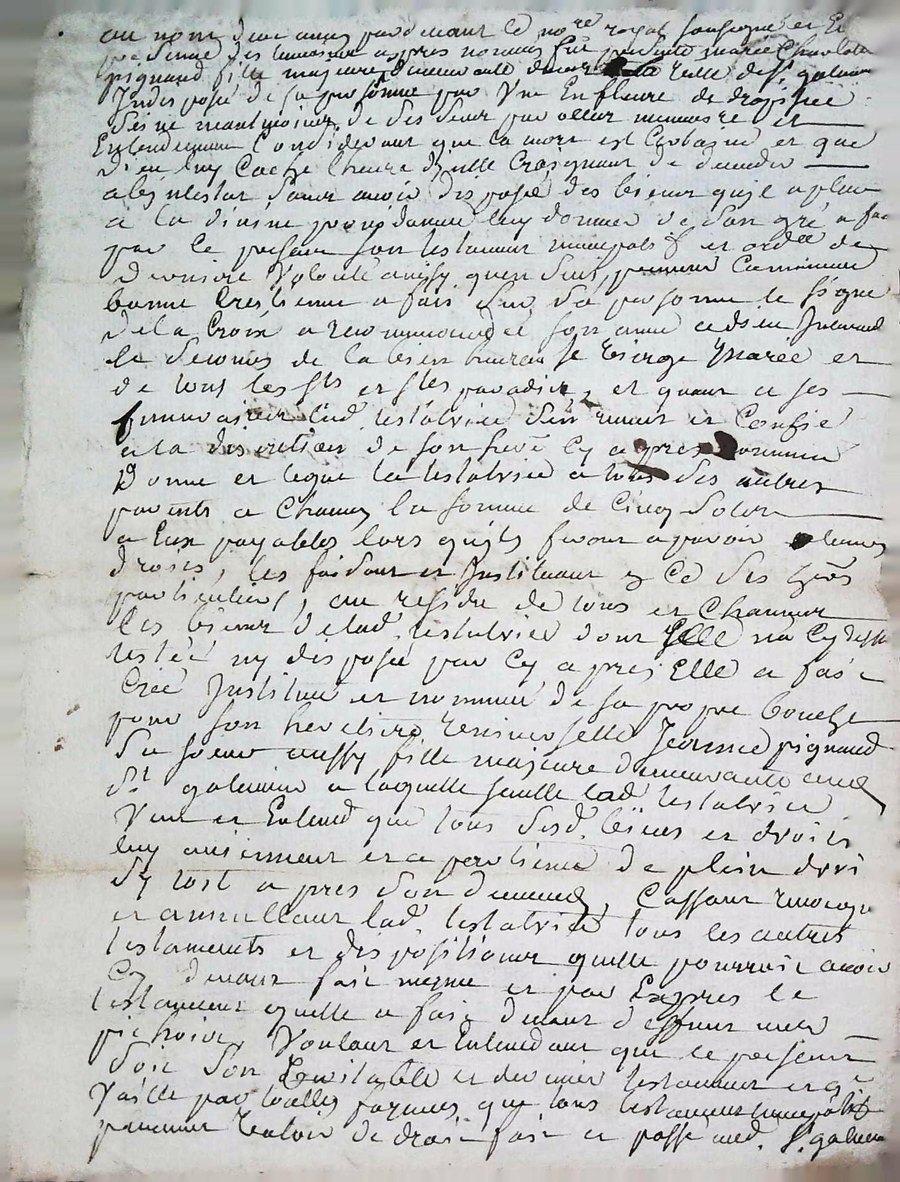 au nom de dieu amen pardevant le nore royal soussigné et En
presence des temoins apres nommes fut presente marie Charlote
pignaud fille majeure demeurante en cette ville de St galmier
Indisposée de sa personne par Une Enfleure de dropisie
Seine neantmoins de ses sens par olles memoire et
Entendement Considerant que la mort est Certaine et que
Dieu luy Cache lheure dicelle Craignant de deceder
abintestat Sans avoir disposé des biens quil a pleu
a la divine providence luy donner de Son gré a fait
par le present son testament nuncupatif et ordce de
derniere Volonté ainsy quen Suit, premierement Comme
bonne Crestienne a fait Sur Sa personne le signe
de la Croix a recommandé son ame a dieu Invoqué
le Secours de la bien heureuse Vierge Marie et
de tous les sts et stes paradis, et quant a ses
funerailles lad. testatrice s'en remet et Confie
a la discretion de son here Cy apres nommée
Donne et legue la testatrice a tous Ses autres
parents a Chacun la somme de Cinq Solz
a Eux payables lors quils feront aparoir de leurs
droits, les faisant et Instituant en Ce Ses hers
particuliers, au residu de tous et Chacuns
les biens de lad. testatrice dont Elle na Cy dessus
testé ny disposé par Cy apres Elle a fait
Créé Institué et nommé de sa propre bouche
pour son heritiere Universelle Jeanne pignaud
Sa soeur aussy fille majeure demeurante aud.
St galmier a laquelle seulle lad. testatrice
Veut et Entend que tous Sesd. biens et droits
luy aviennent et apartienne de plein droit
Sy tost apres Son deceds, Cassant revoquant
et annullant lad. testatrice tous les autres
testaments et dispositions quelle pourroit avoir
Cy devant fait mesme et par Expres le
testament quelle a fait devant deffunt me
pichoir, Voulant et Entendant que le present
Soit Son Veritable et dernier testament et qe
Vaille par telles formes que tous testaments nuncupatifs
peuvent Valoir de droit fait et passé aud. St galmier